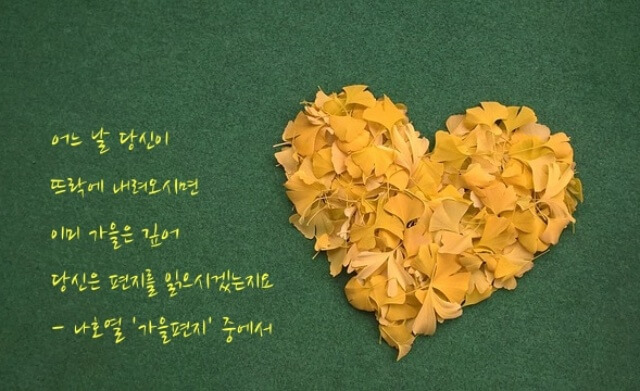 어느 날 당신이
뜨락에 내려오시면
이미 가을은 깊어
당신은 편지를 읽으시겠는지요
- 나호열 '가을편지' 중에서